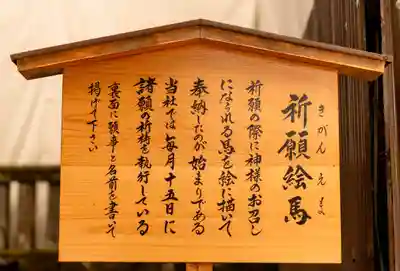 祈願絵馬
きがん えま
祈願の際に神様のお召し
になられる馬を絵に描いて
奉納したのが始まりである
当社では毎月十五日に
諸願の祈祷を執行している
裏面に願事と名前を書いて
掲げて下さい